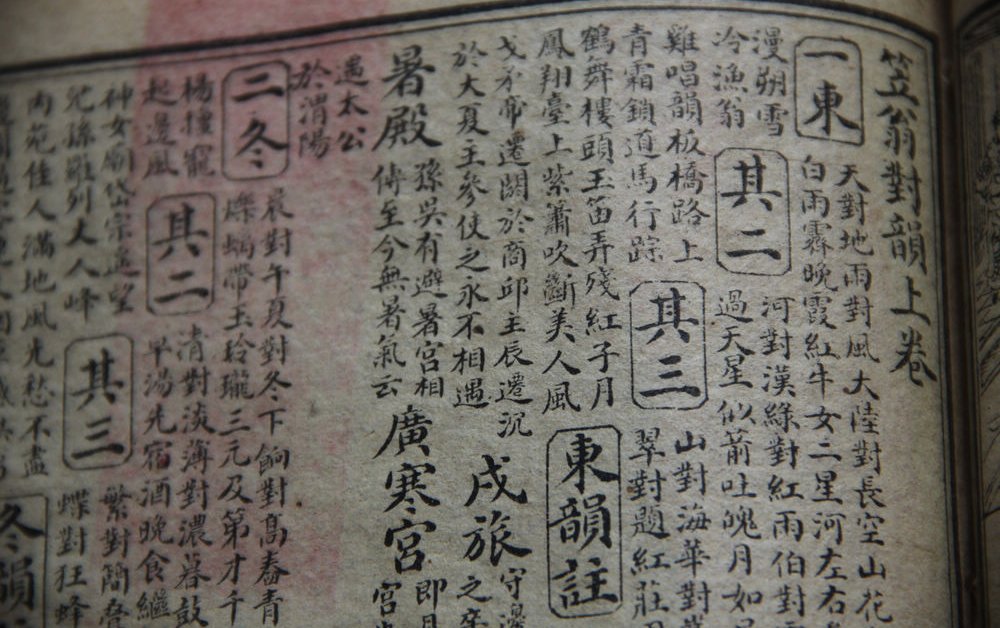 笠翁對韻上卷
一東
天對地雨對風大陸對長空山花
白雨霽晚霞紅牛女二星河左右
漫朔雪
冷漁翁
其二
河對漢綠對紅雨伯對
過天星似箭吐魄月如
雞唱韻板橋路上
青霜鎖道馬行踪
其三
山對海華對
翠對題紅莊
鶴舞樓頭玉笛弄殘紅子月
鳳翔臺上紫簫吹斷美人風
東韻註
戈矛帝遷閼於商邱主辰遷沉
於大夏主參使之永不相遇
戍旅
守邊
之卒
暑殿
孫吳有避暑宮相
傳至今無暑氣云
廣寒宮
即月
宮
遇太公
於渭陽
二冬
晨對午夏對冬下餉對高舂青
帶玉玲瓏三元及第才千
楊摟寵
起邊風
其二
清對淡薄對濃暮鼓
早湯先宿酒晚食繼
仲女廟岱宗遙望
兒孫羅列大人峰
其三
繁對簡疊
蝶對狂蜂
内苑佳人滿地風光愁不盡
冬韻